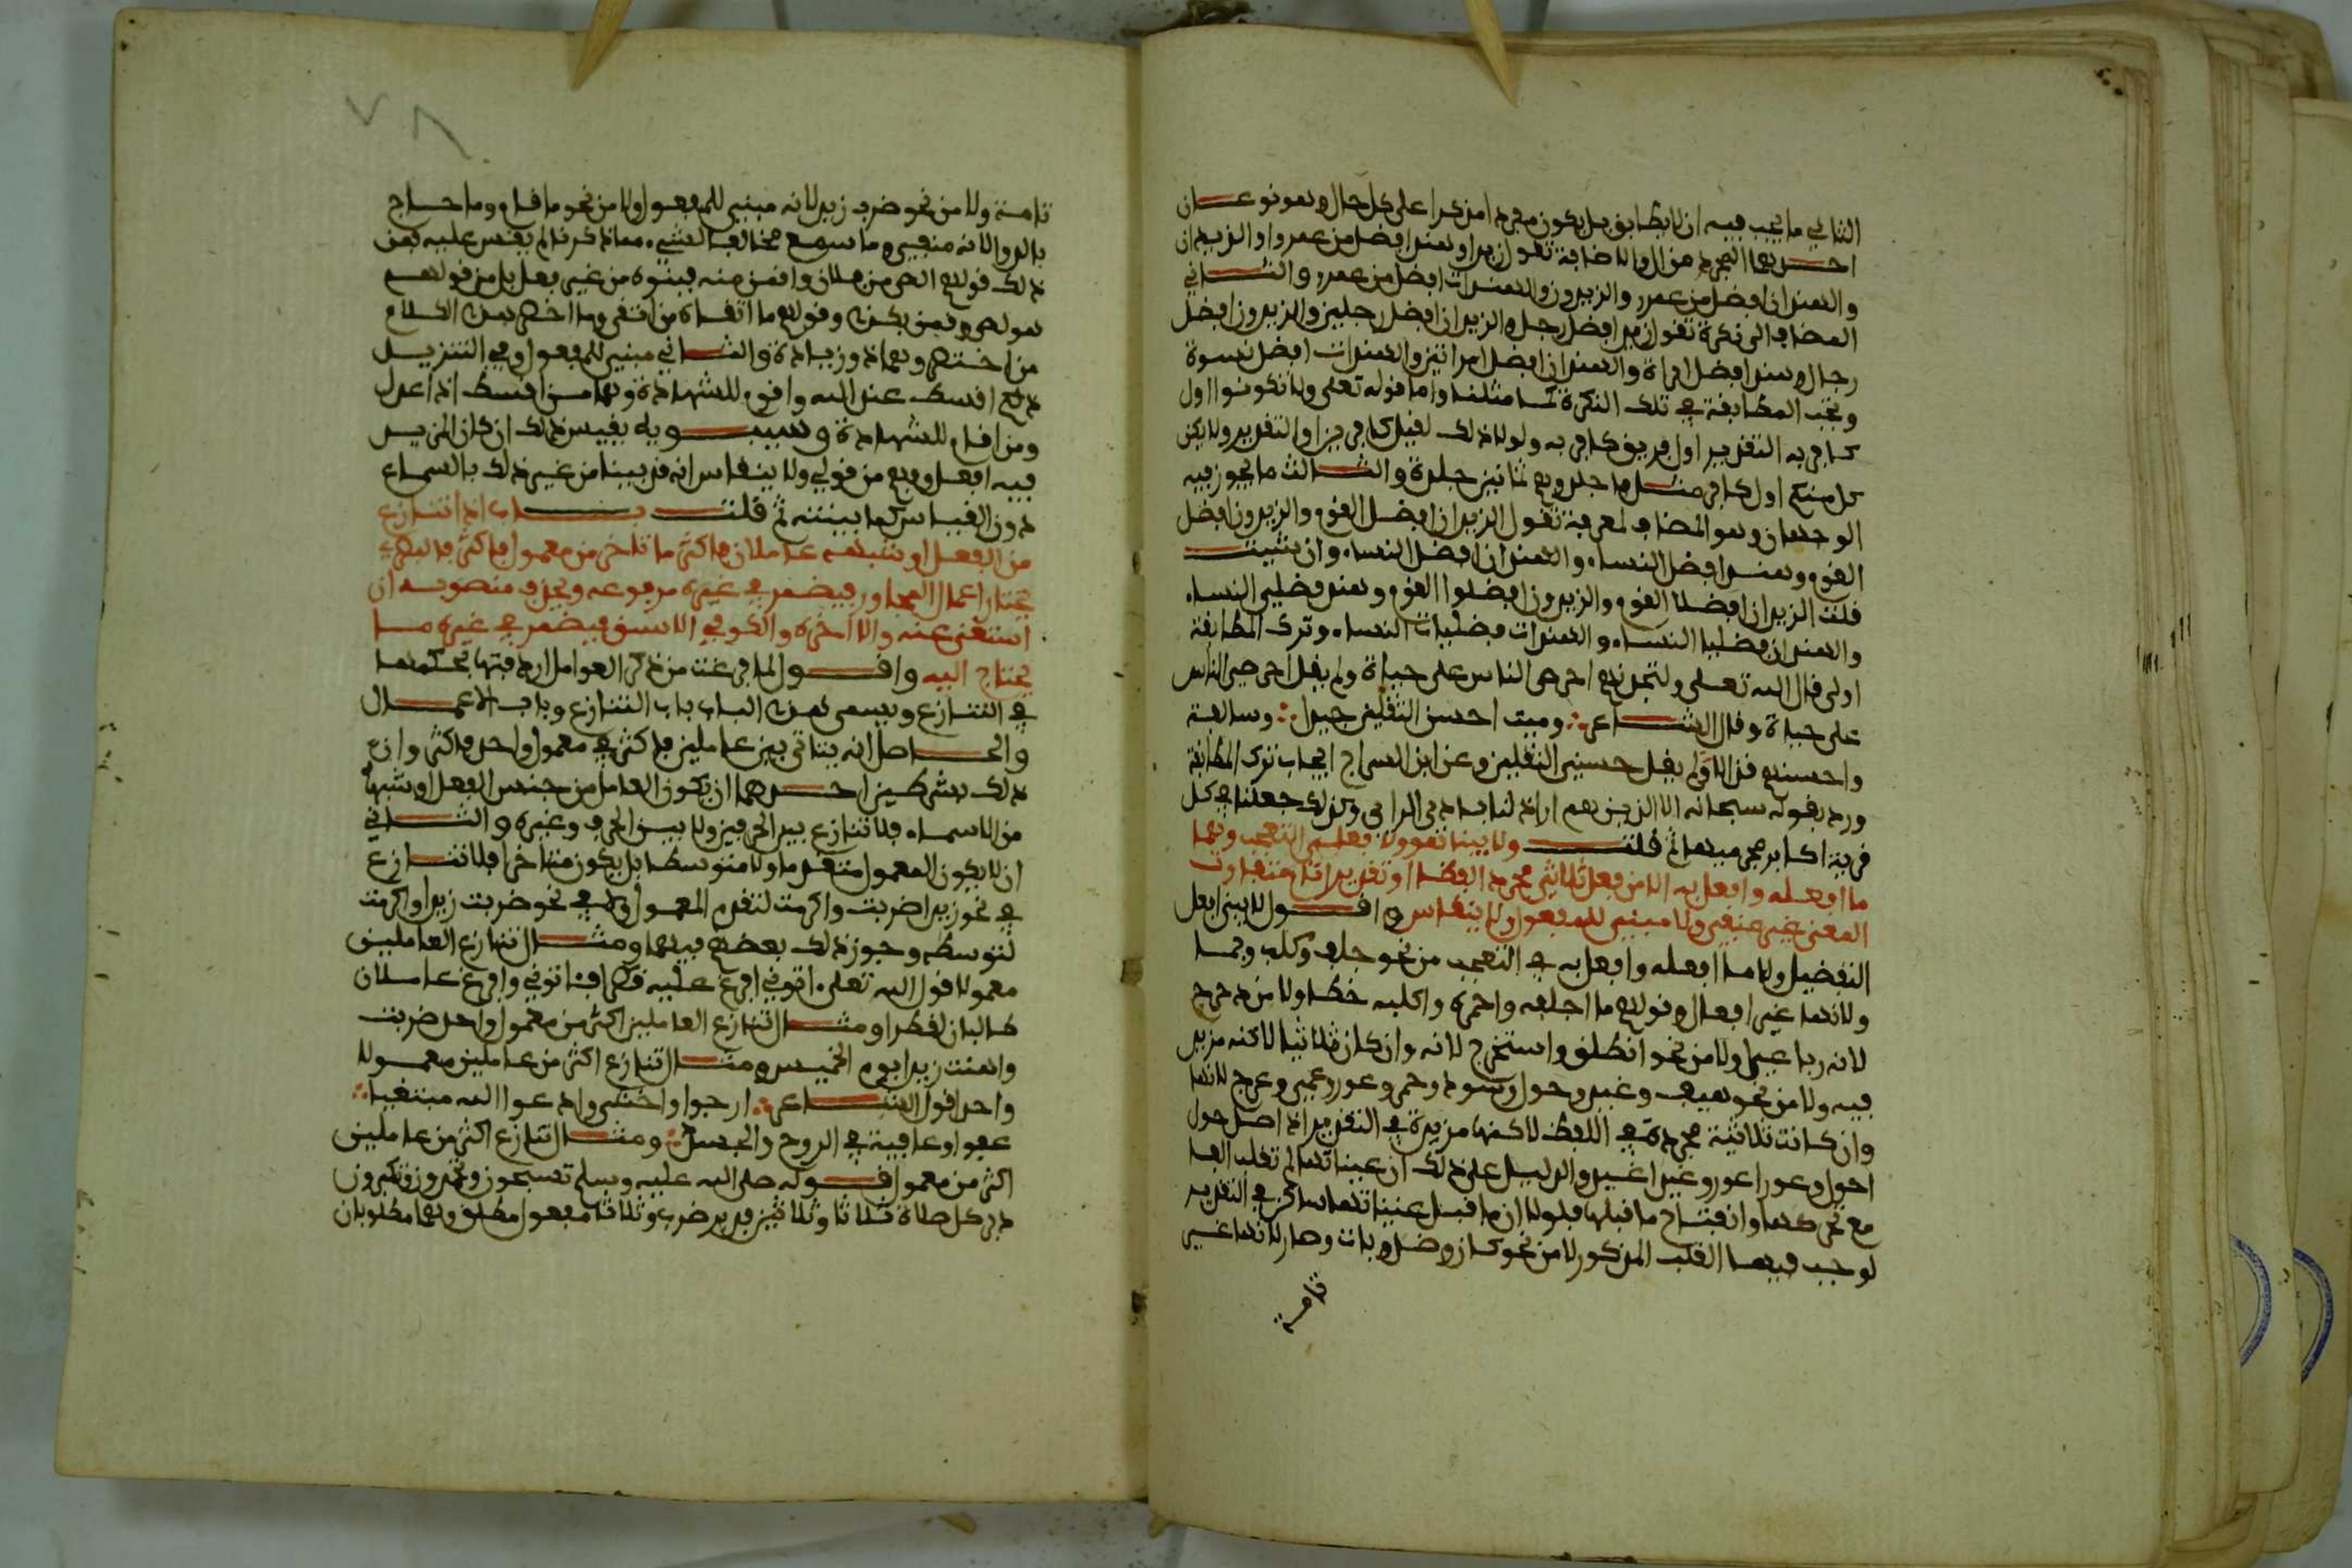 الثاني ما يجب فيه ان لا يطابق بل يكون مفردا مذكرا على كل حال وهو نوعان
احدهما المجرد من ال والاضافة تقول زيد او هند افضل من عمرو او الزيدان
والهندان افضل من عمرو والزيدون والهندات افضل من عمرو والثاني
المضاف الى نكرة تقول زيد افضل رجل والزيدان افضل رجلين والزيدون افضل
رجال وهند افضل امراة والهندان افضل امراتين والهندات افضل نسوة
وتجب المطابقة في تلك النكرة كما مثلنا واما قوله تعلى ولا تكونوا اول
كافر به التقدير اول فريق كافر به ولولا ذلك لقيل كافرين او التقدير ولا يكن
كل منكم اول كافر مثل فاجلدوهم ثمانين جلدة والثالث ما يجوز فيه
الوجهان وهو المضاف لمعرفة تقول الزيدان افضل القوم والزيدون افضل
القوم وهند افضل النساء والهندان افضل النساء وان شيت
قلت الزيدان افضلا القوم والزيدون افضلوا القوم وهند فضلى النساء
والهندان فضليا النساء والهندات فضليات النساء وترك المطابقة
اولى قال الله تعلى ولتجدنهم احرص الناس على حياة ولم يقل احرصي الناس
على حياة وقال الشاعر ومية احسن الثقلين جيدا وسالفة
واحسنهم قذالا ولم يقل حسنى الثقلين وعن ابن السراج ايجاب ترك المطابقة
ورد بقوله سبحانه الا الذين هم اراذلنا بادي الراي وكذلك جعلنا في كل
قرية اكابر مجرميها ثم قلت ولا يبنا هو ولا فعلى التعجب وهما
ما افعله وافعل به الا من فعل ثلاثي مجرد لفظا او تقديرا تام متفاوت
المعنى غير منفي ولا مبني للمفعول ولا ينقاس واقول لا يبنى افعل
التفضيل ولا ما افعله وافعل به في التعجب من نحو جلف وكلب وحمار
ولانها غير افعال وقولهم ما اجلفه واحمره واكلبه خطا ولا من دحرج
لانه رباعي ولا من نحو انطلق واستخرج لانه وان كان ثلاثيا لاكنه مزيد
فيه ولا من نحو هيف وغيد وحول وسود وحمر وعور وعمي وعرج لانها
وان كانت ثلاثية مجردة في اللفظ لاكنها مزيدة في التقدير اذ اصل حول
احول وعور اعور وغيد اغيد والدليل على ذلك ان عيناتها لم تقلب الفا
مع تحركها وانفتاح ما قبلها فلولا ان ما قبل عيناتها ساكن في التقدير
لوجب فيها القلب المذكور لا من نحو كان وظل وبات وصار لانها غير
تامة
٧٨
تامة ولا من نحو ضرب زيد لانه مبني للمفعول ولا من نحو ما قام وما عاج
بالدواء لانه منفي وما سمع مخالفا لشيء مما ذكرنا لم يقس عليه فمن
ذلك قولهم الص من فلان واقمن منه فبنوه من غير فعل بل من قولهم
هو لص وقمن بكذا وقولهم ما اتقاه من اتقى وما اخصر هذا الكلام
من اختصر وهما ذو زيادة والثاني مبني للمفعول وفي التنزيل
ذلكم اقسط عند الله واقوم للشهادة وهما من اقسط اذا عدل
ومن اقام للشهادة وسيبويه يقيس ذلك ان كان المزيد
فيه افعل وفهم من قولي ولا ينقاس انه قد يبنا من غير ذلك بالسماع
دون القياس كما بينته ثم قلت باب اذا تنازع
من الفعل او شبهه عاملان فاكثر ما تاخر من معمول فاكثر فالبصري
يختار اعمال المجاور فيضمر في غيره مرفوعه ويحذف منصوبه ان
استغنى عنه والا اخره والكوفي الاسبق فيضمر في غيره ما
يحتاج اليه واقول لما فرغت من ذكر العوامل اردفتها بحكمها
في التنازع ويسمى هذا الباب باب التنازع وباب الاعمال
والحاصل انه يتاتى بين عاملين فاكثر في معمول واحد فاكثر وان
ذلك بشرطين احدهما ان يكون العامل من جنس الفعل او شبهه
من الاسماء فلا تنازع بين الحرفين ولا بين الحرف وغيره والثاني
ان لا يكون المعمول متقدما ولا متوسطا بل يكون متاخرا فلا تنازع
في نحو زيدا ضربت واكرمت لتقدم المعمول ولا في نحو ضربت زيدا واكرمت
لتوسطه وجوز ذلك بعضهم فيهما ومثال تنازع العاملين
معمولا قول الله تعلى اتوني افرغ عليه قطرا فاتوني وافرغ عاملان
طالبان لقطرا ومثال تنازع العاملين اكثر من معمول واحد ضربت
واهنت زيدا يوم الخميس ومثال تنازع اكثر من عاملين معمولا
واحدا قول الشاعر ارجوا واخشى وادعوا الله مبتغيا
عفوا وعافية في الروح والجسد ومثال تنازع اكثر من عاملين
اكثر من معمول قوله صلى الله عليه وسلم تسبحون وتحمدون وتكبرون
دبر كل صلاة ثلاثا وثلاثين فدبر ظرف وثلاثا مفعول مطلق وهما مطلوبان